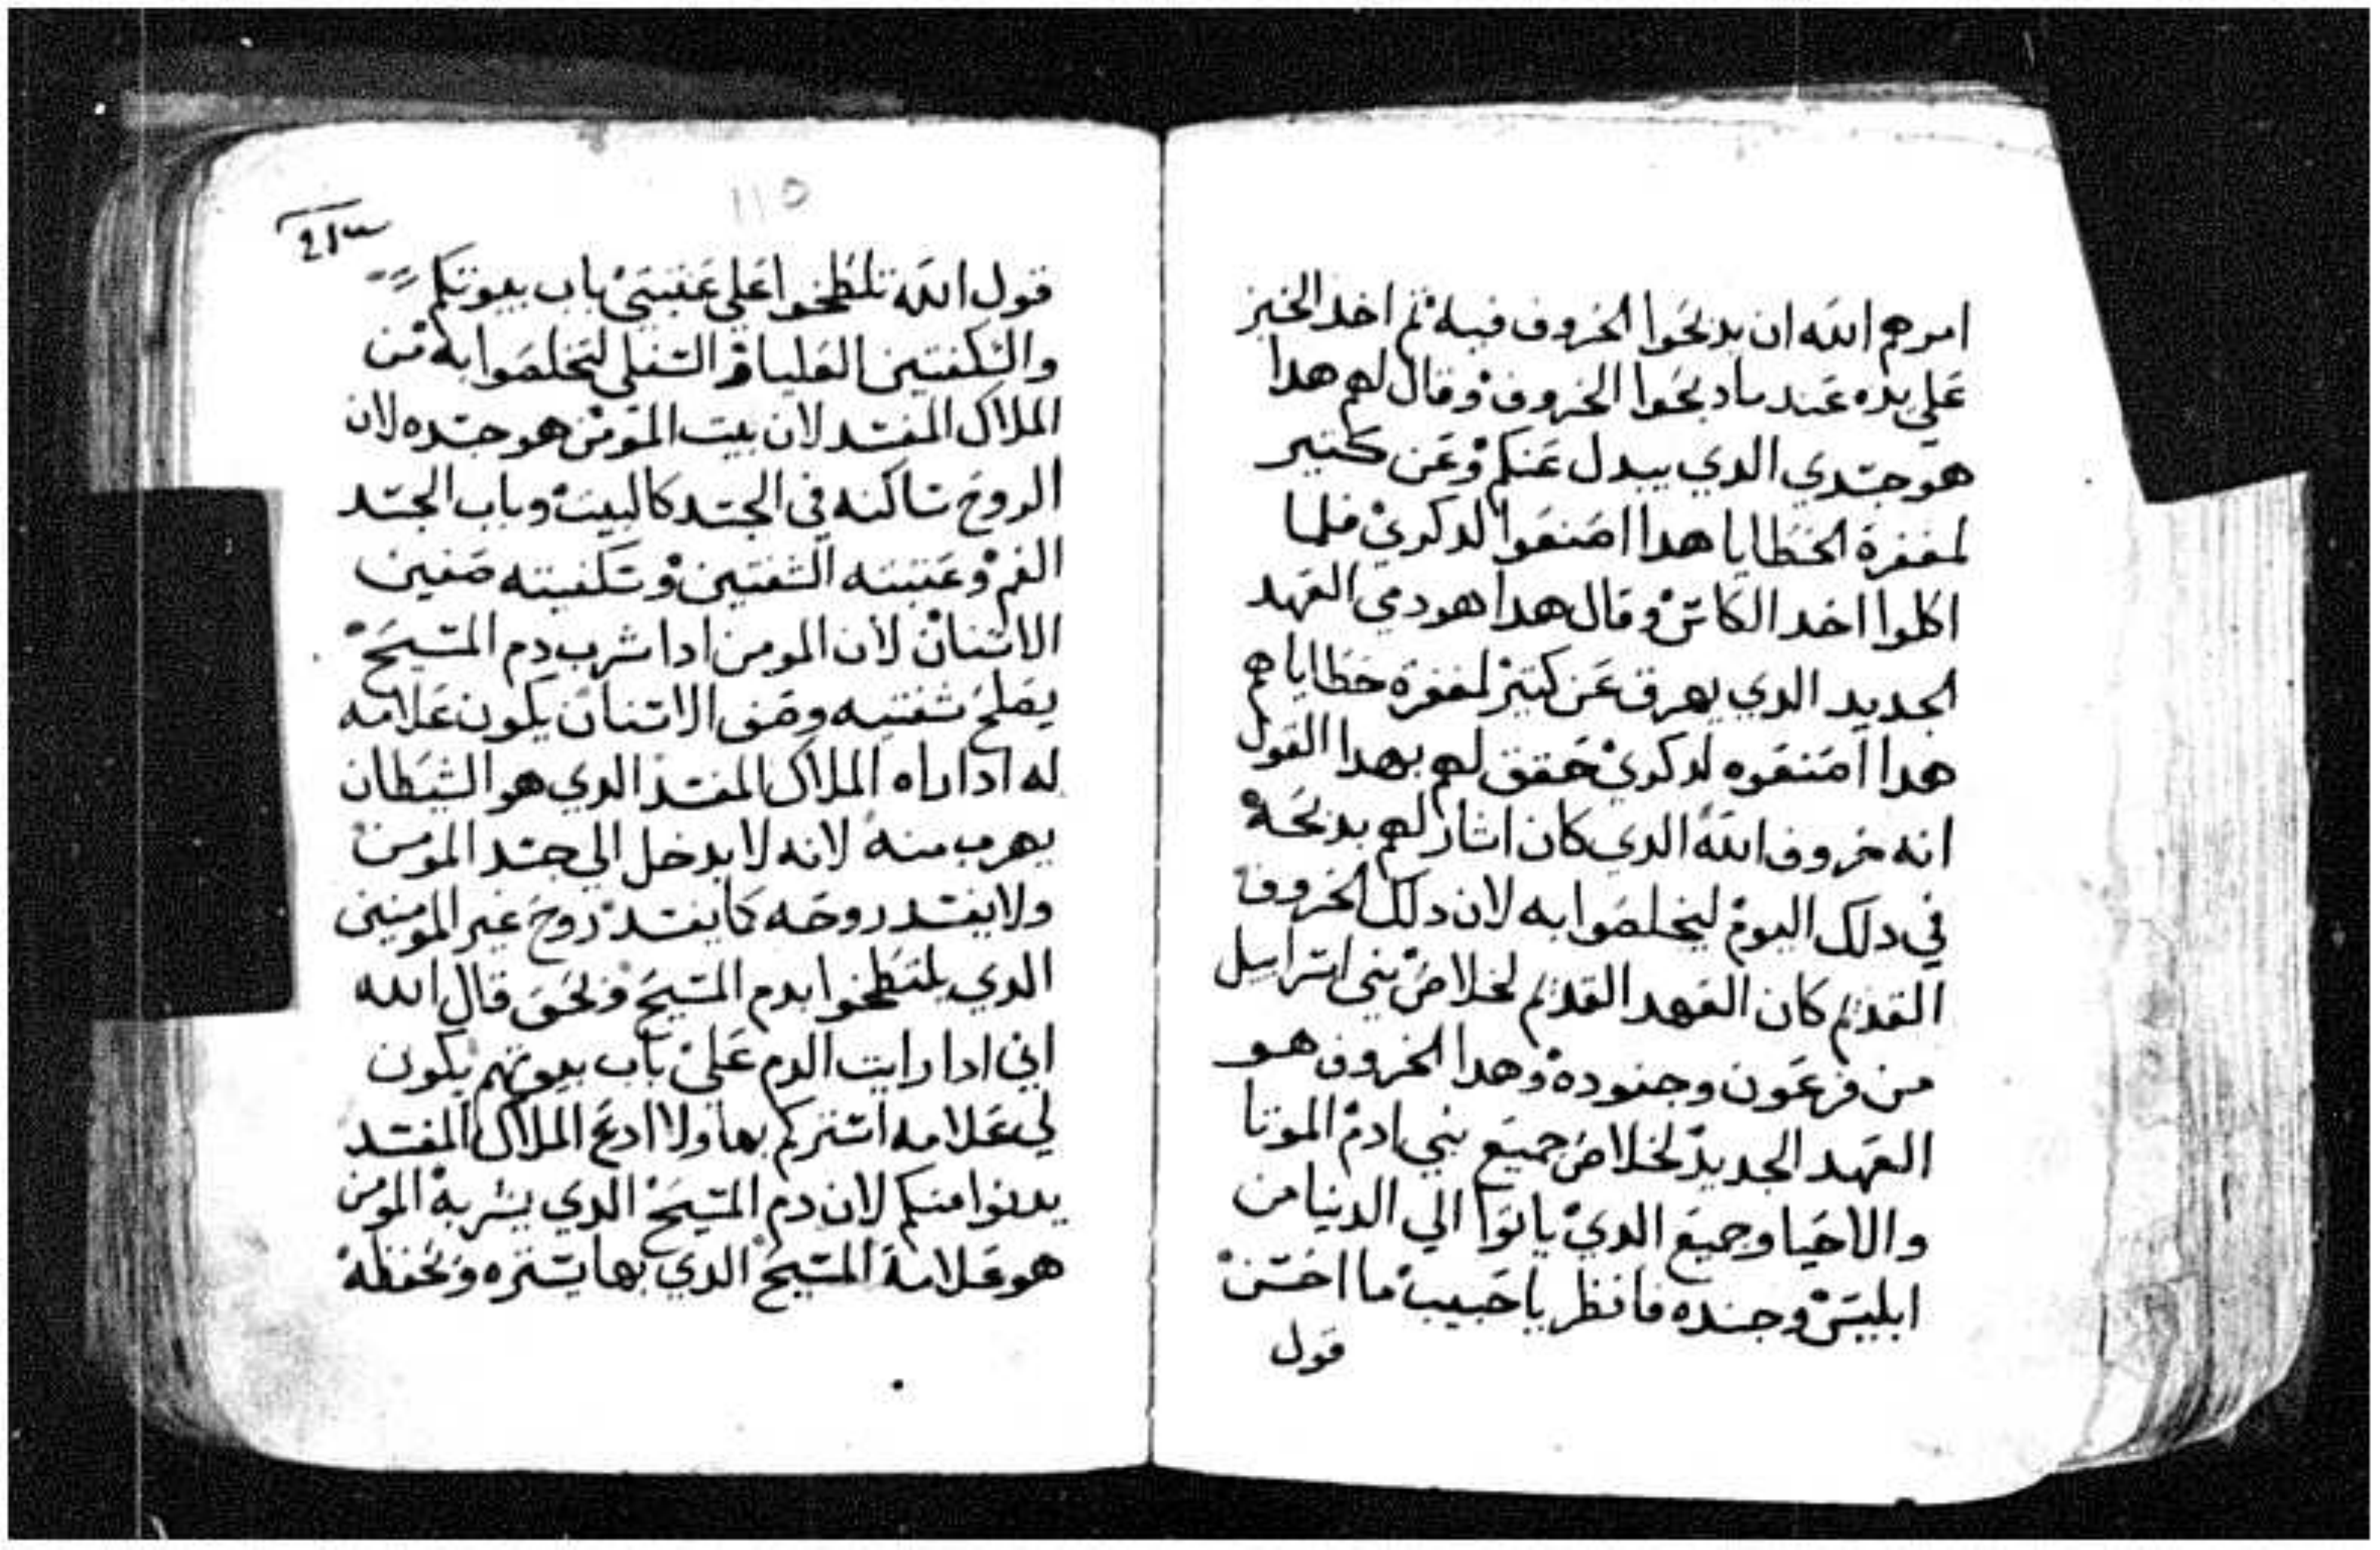 امرهم الله ان يدبحوا الخروف فيه ثم اخد الخبز
علي يده عند ما دبحوا الخروف وقال لهم هدا
هو جسدي الدي يبدل عنكم وعن كتير
لمغفرة الخطايا هدا اصنعوا لدكري فلما
اكلوا اخد الكاس وقال هدا هو دمي العهد
الجديد الدي يهرق عن كتير لمغفرة خطاياهم
هدا اصنعوه لدكري حقق لهم بهدا القول
انه خروف الله الدي كان اشار لهم بدبحه
في دلك اليوم ليخلصوا به لان دلك الخروف
القديم كان العهد القديم لخلاص بني اسراييل
من فرعون وجنوده وهدا الخروف هو
العهد الجديد لخلاص جميع بني ادم الموتا
والاحيا وجميع الدي ياتوا الي الدنيا من
ابليس وجنده فانظر يا حبيب ما احسن
قول
115
قول الله تلطخوا علي عتبتي باب بيوتكم
والسكفتين العليا والسفلي لتخلصوا به من
الملاك المفسد لان بيت المومن هو جسده لان
الروح ساكنه في الجسد كالبيت وباب الجسد
الفم وعتبته الشفتين وسكفيته صفين
الاسنان لان المومن ادا شرب دم المسيح
يصلح شفتيه وصفي الاسنان يكون علامه
له ادا راه الملاك المفسد الدي هو الشيطان
يهرب منه لانه لا يدخل الي جسد المومن
ولا يفسد روحه كما يفسد روح غير المومنين
الدي يلتطخوا بدم المسيح وبحق قال الله
اني ادا رايت الدم علي باب بيوتهم يكون
لي علامه استركم بها ولا ادع الملاك المفسد
يدنوا منكم لان دم المسيح الدي يشربه المومن
هو علامة المسيح الدي بها يستره وبحفظه